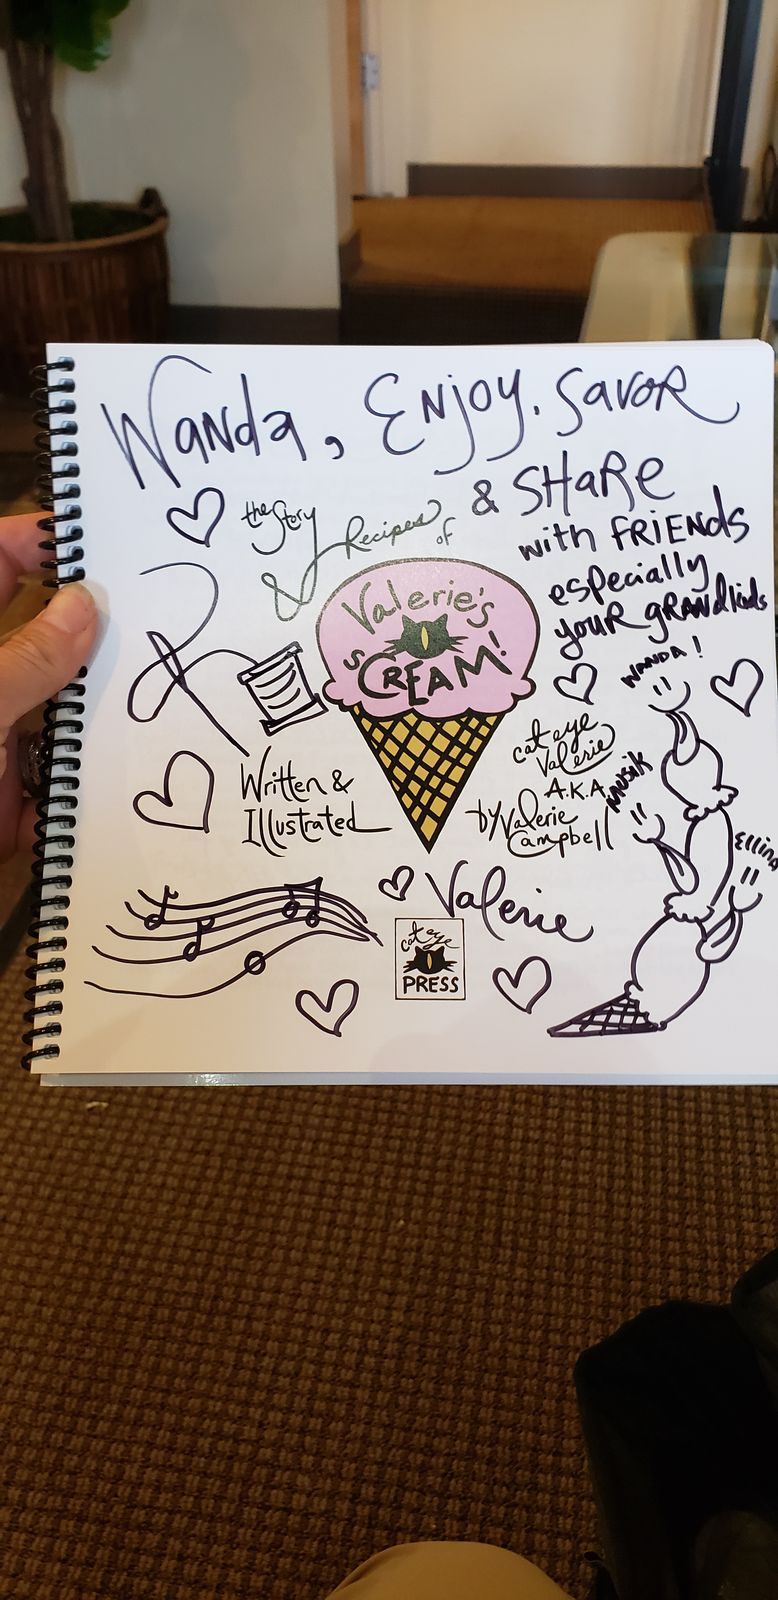 Wanda, Enjoy, Savor
& SHaRe
with FRIENDS
especially
your GRANdkids
the Story
& Recipes of
Valerie's
sCREAM!
WANDA!
cat eye
Valerie
A.K.A.
Musik
Written &
Illustrated
by Valerie
Campbell
Ellina
Valerie
cat eye
PRESS